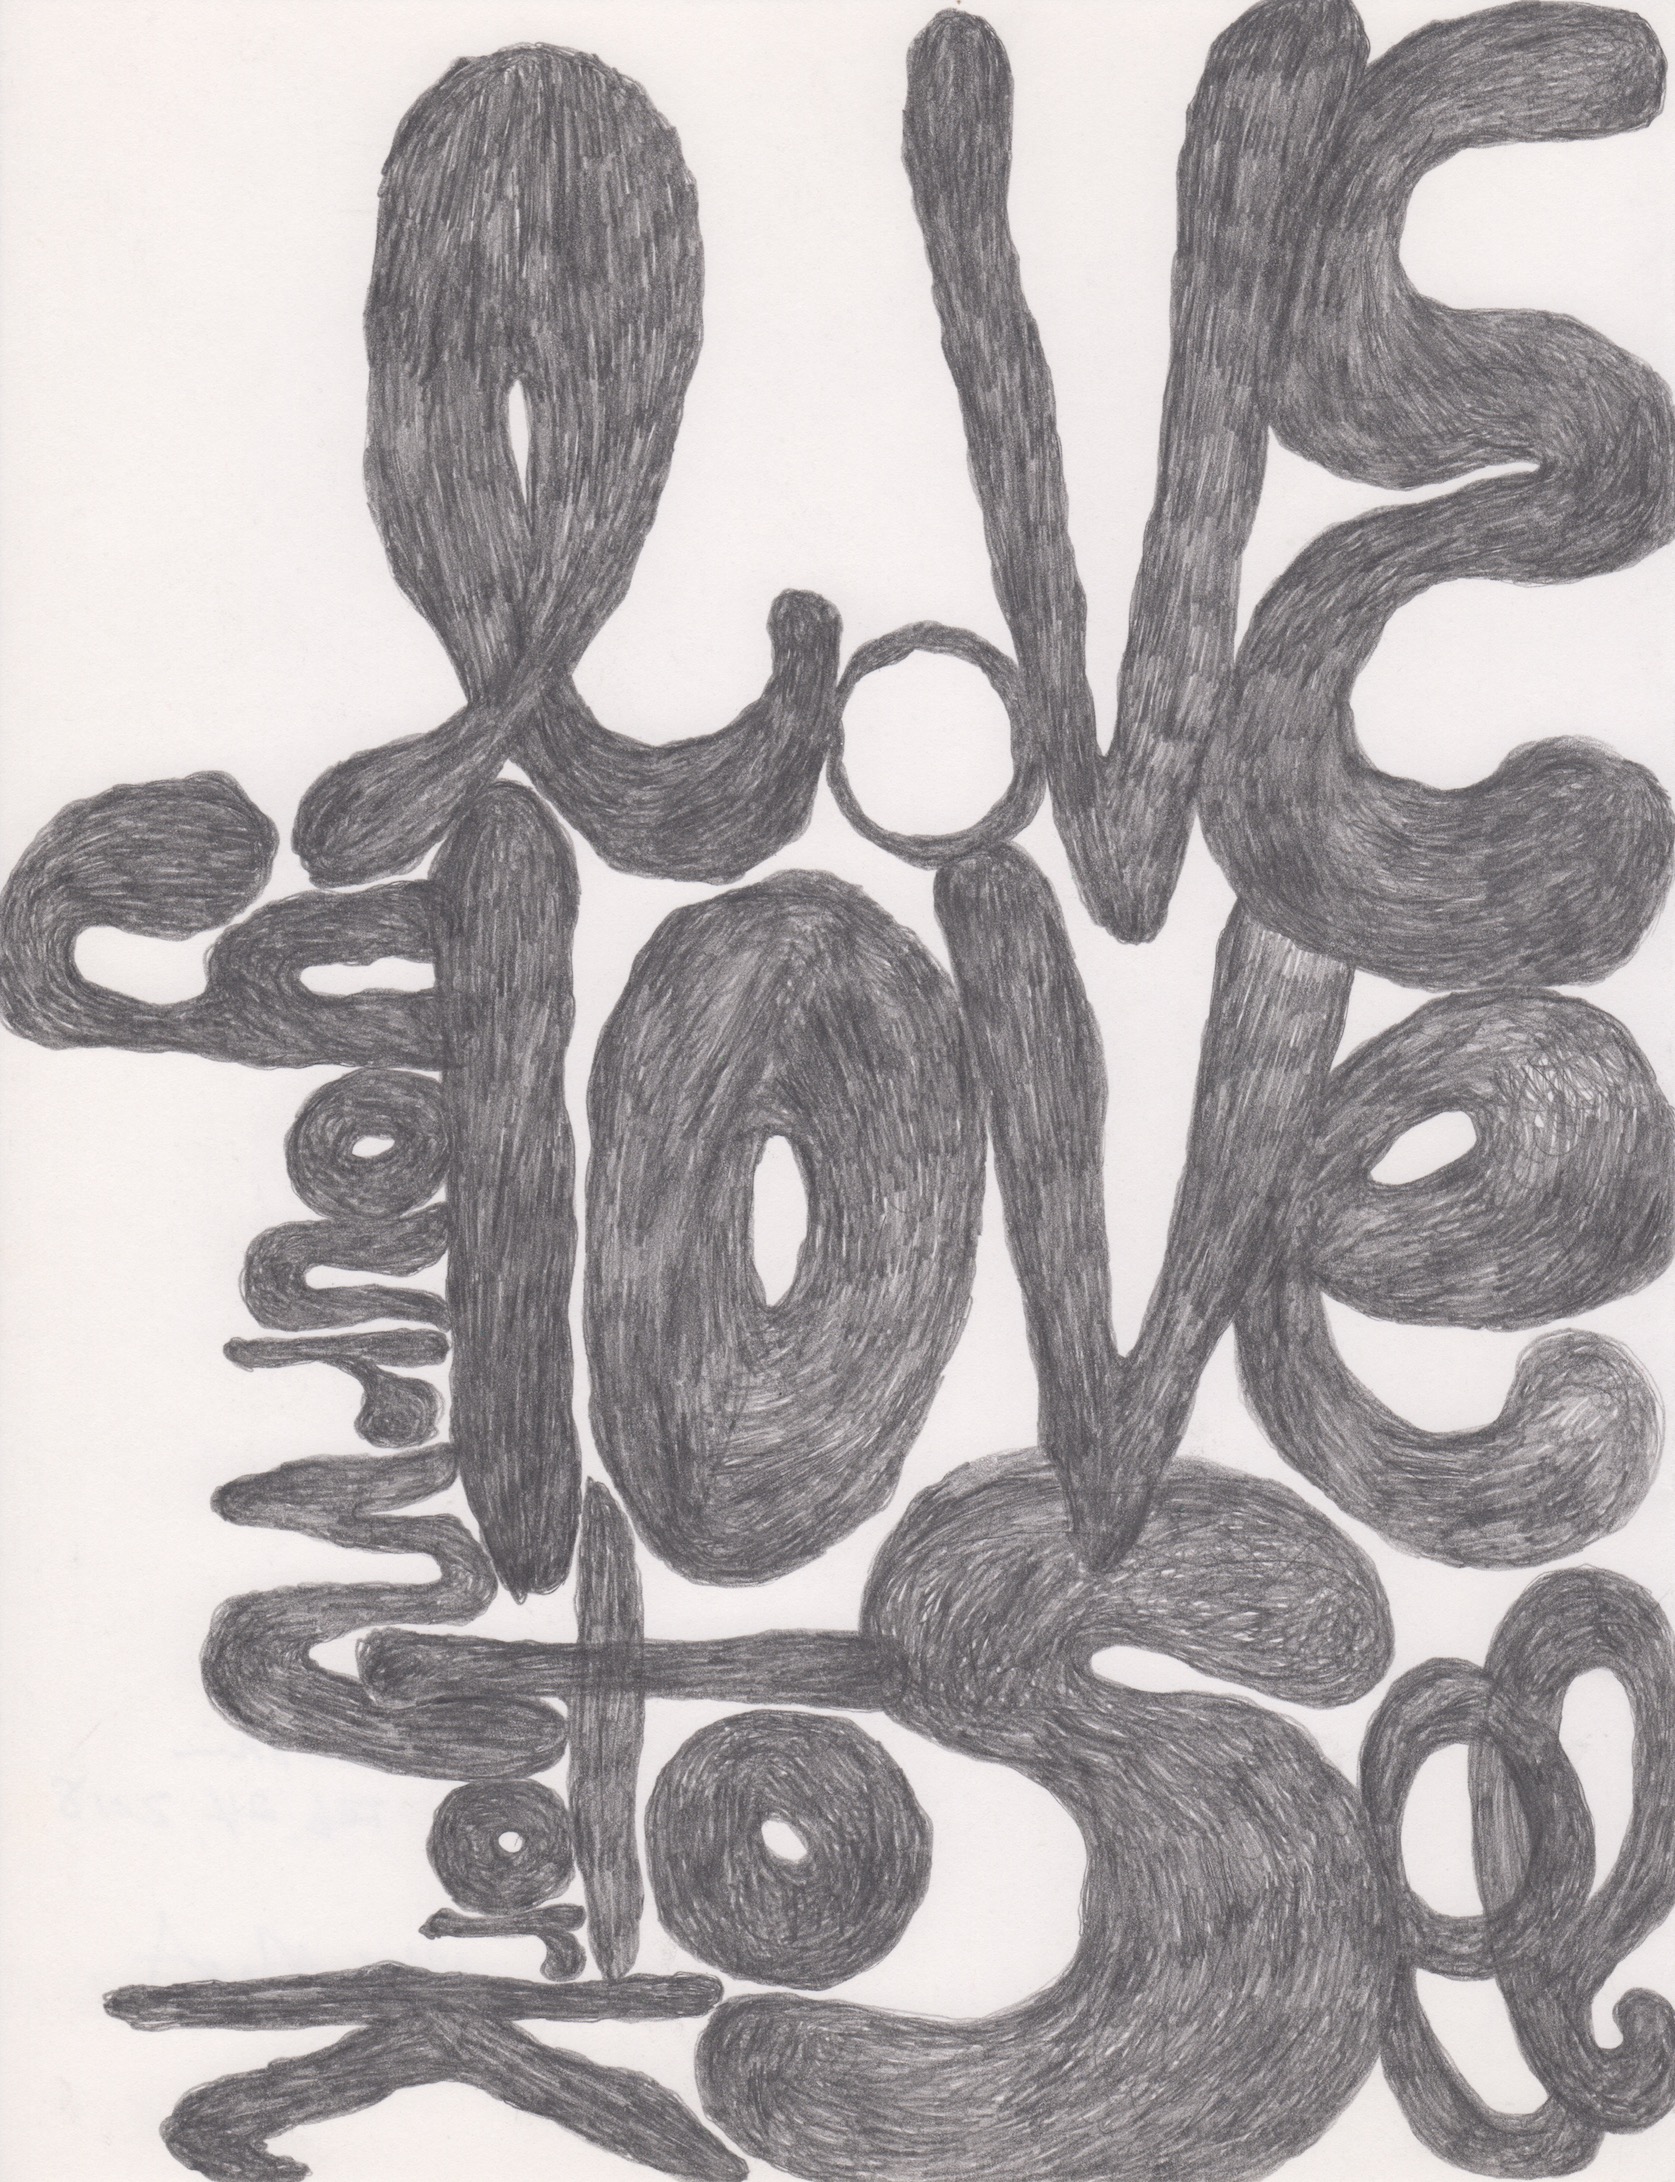 LOVE
lOVe
to See
your worK